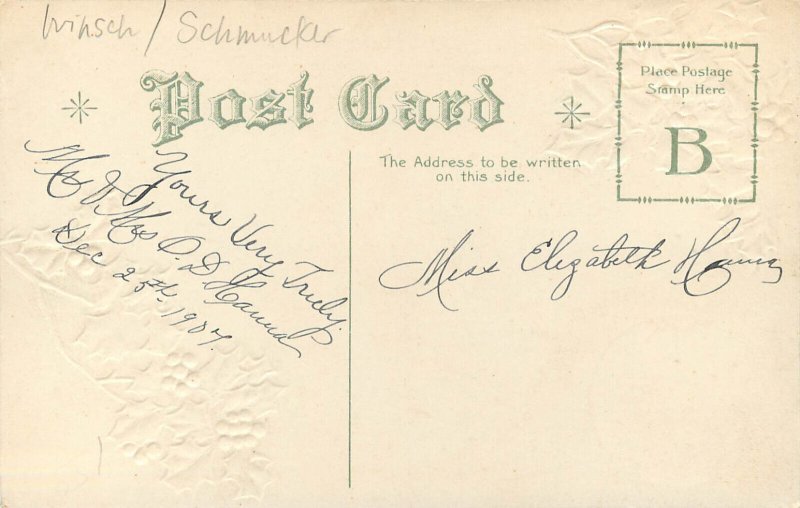 Winsch / Schmucker
Post Card
Place Postage
Stamp Here
B
The Address to be written
on this side.
Yours Very Truly.
Mr & Mrs O. D. Hanna
Dec 25th. 1907
Miss Elizabeth Hanna